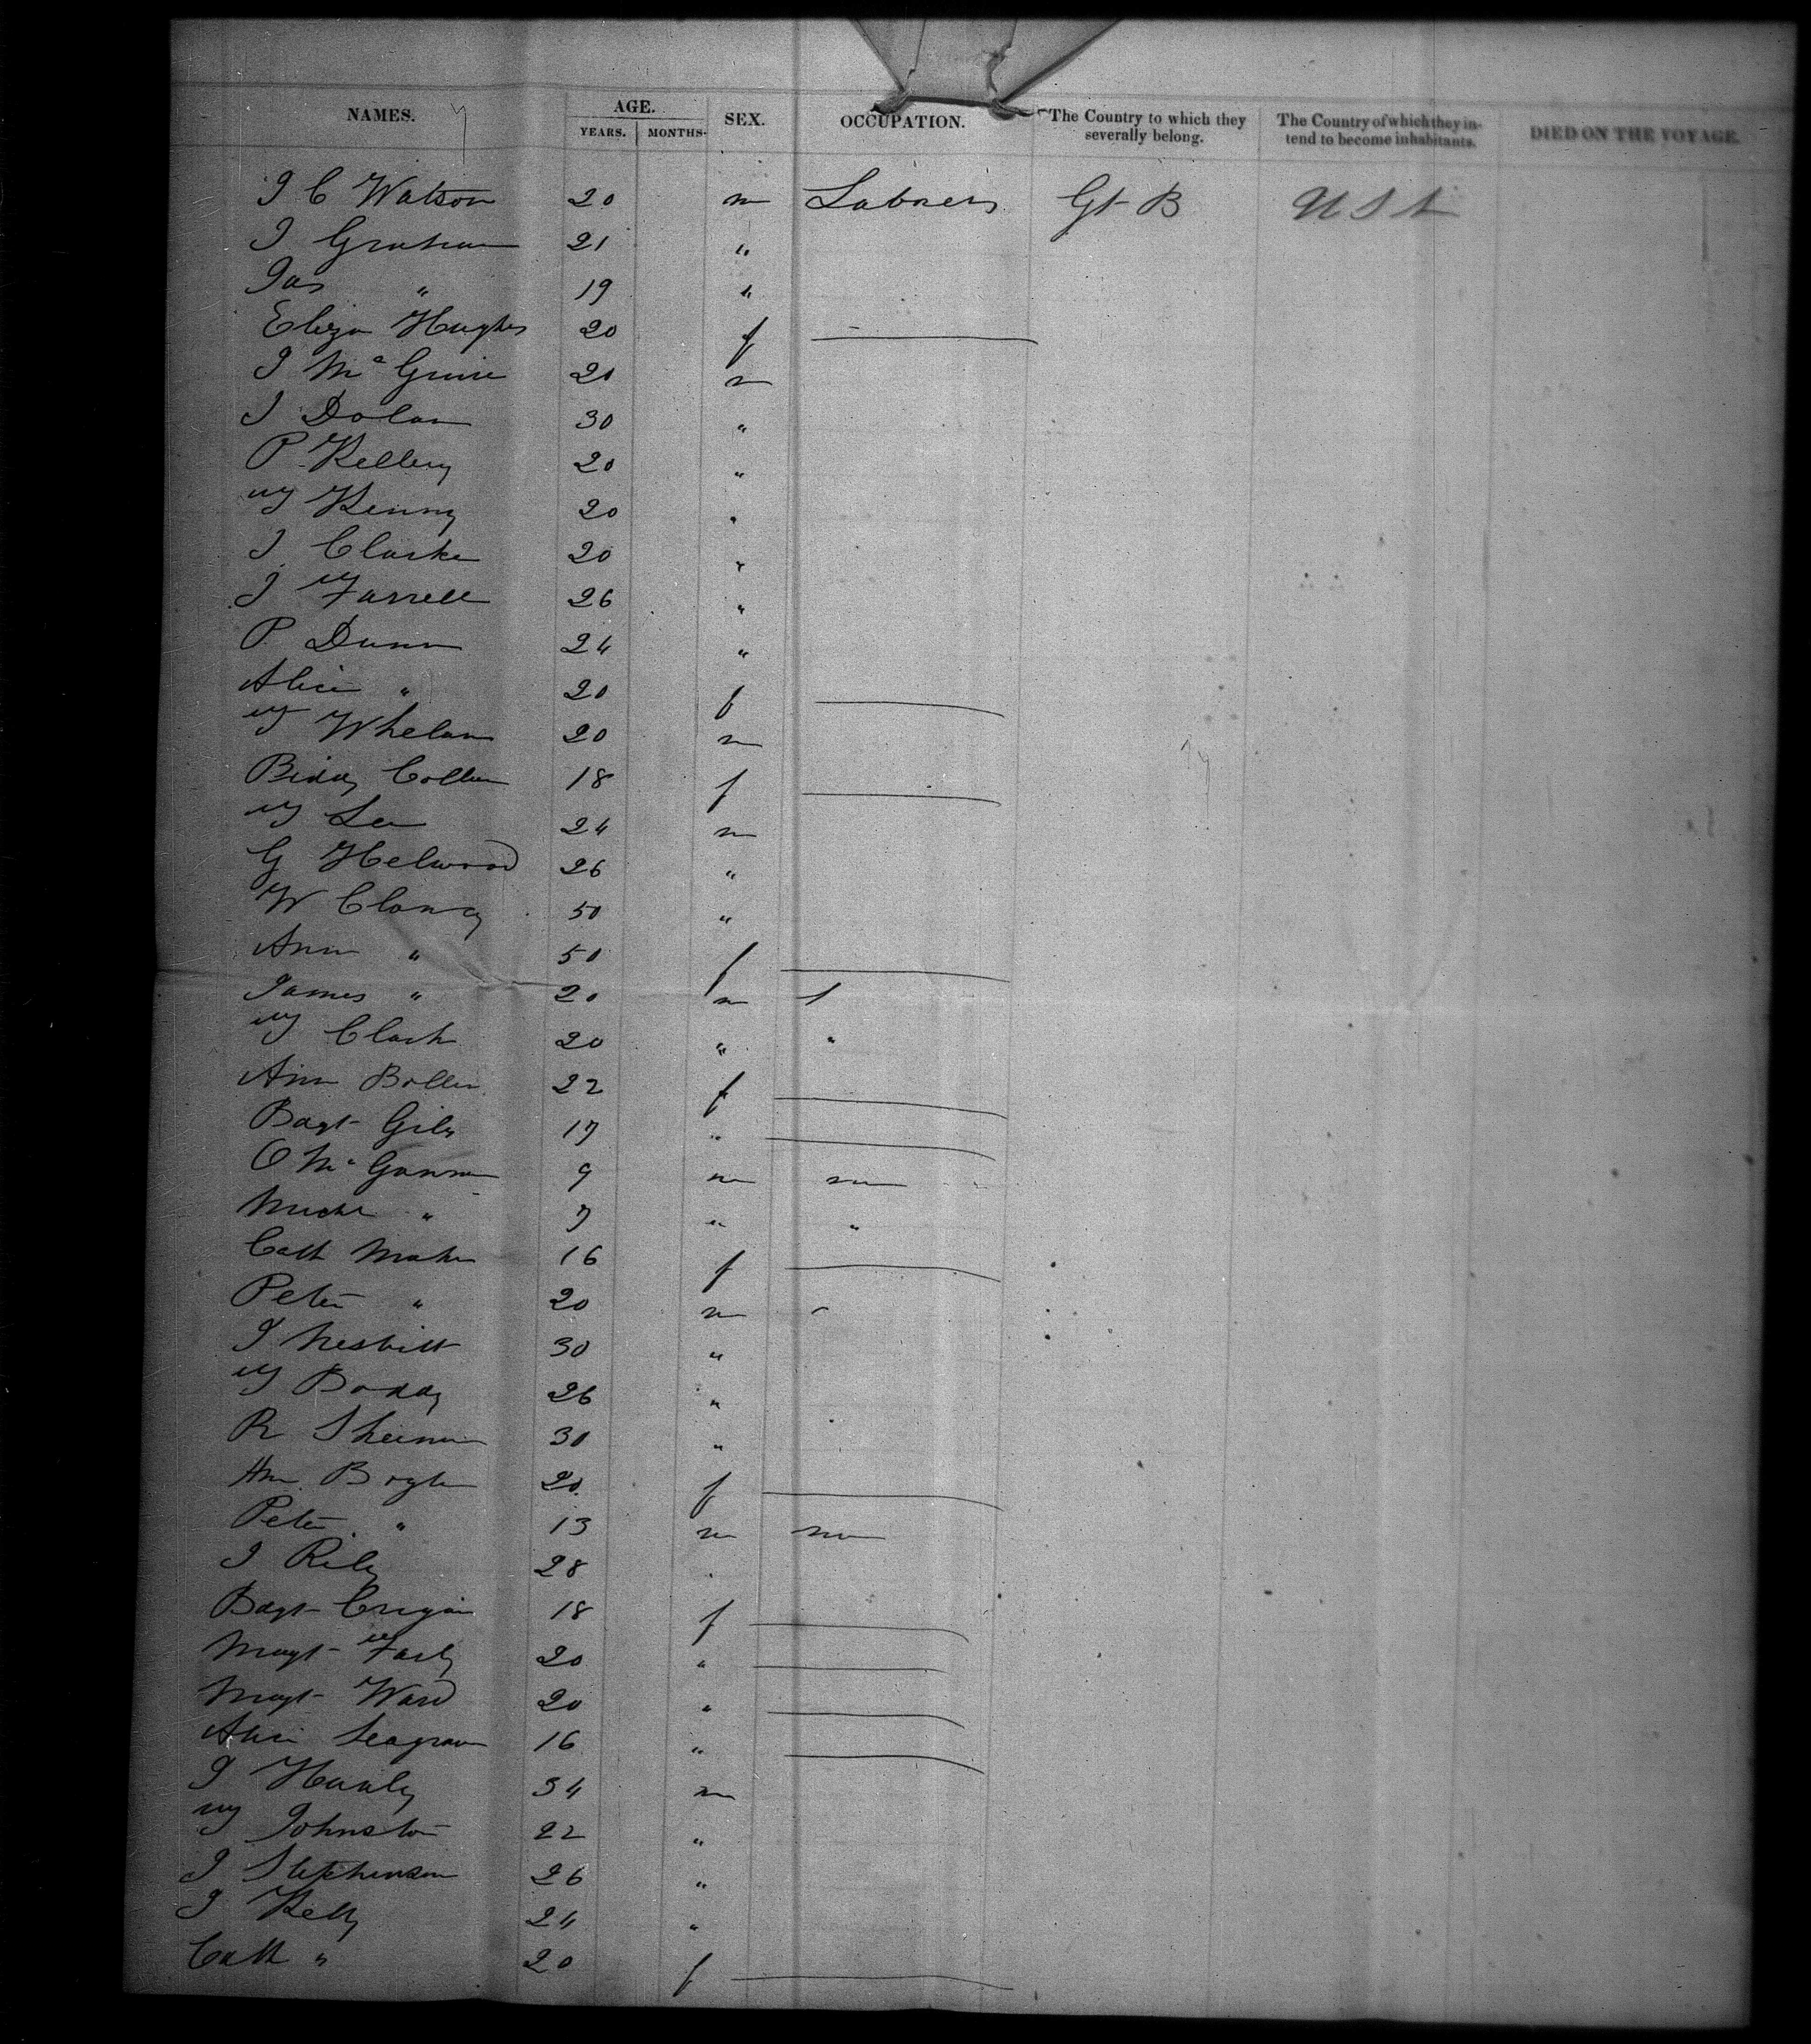 NAMES. AGE. SEX. OCCUPATION. The Country to which they severally belong. The Country of which they intend to become inhabitants. DIED ON THE VOYAGE.
YEARS. MONTHS.
J C Watson 20 m Labrers Gt B U S A
J Graham 21 "
Jas " 19 "
Eliza Hughes 20 f
J McGuire 20 m
J Dolan 30 "
P Kelley 20 "
M Kenny 20 "
J Clarke 20 "
J Farrell 26 "
P Dunn 24 "
Alice " 20 f
M Whelan 20 m
Biddy Collen 18 f
M Lee 24 m
G Helwood 26 "
W Clancy 50 "
Ann " 50 f
James " 20 m
M Clark 20 " "
Ann Bollen 22 f
Bagt 17 "
O 9 m
Michl " 7 " "
Cath Maher 16 f
Peter " 20 m
J Nesbitt 30 "
M Boddy 26 "
R 30 "
Ann Boyle 20 f
Peter " 13 m
J Rily 28
Bdgt 18 f
Magt 20 "
Magt Ward 20 "
Alice Seagrave 16 "
J 34 m
M Johnston 22 "
J Stephenson 26 "
J Kelly 24 "
Cath " 20 f